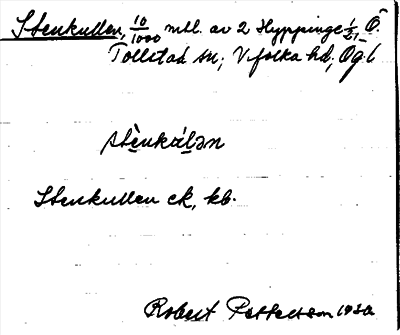 Stenkullen, 10/1000 mtl. av 2 Hyppinge 1/21 Ö.
Tollstad sn; V-folka hd; Ög. l
stènkúlən
Stenkullen ck, kb.
Robert Pettersson 1930